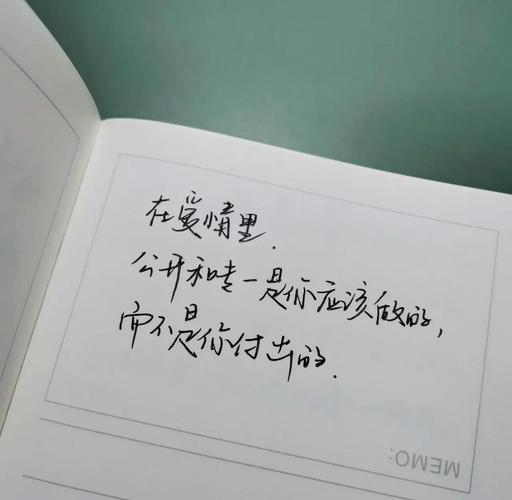 在爱情里.
公开和专一是你应该做的,
而不是你付出的.
MEMO: